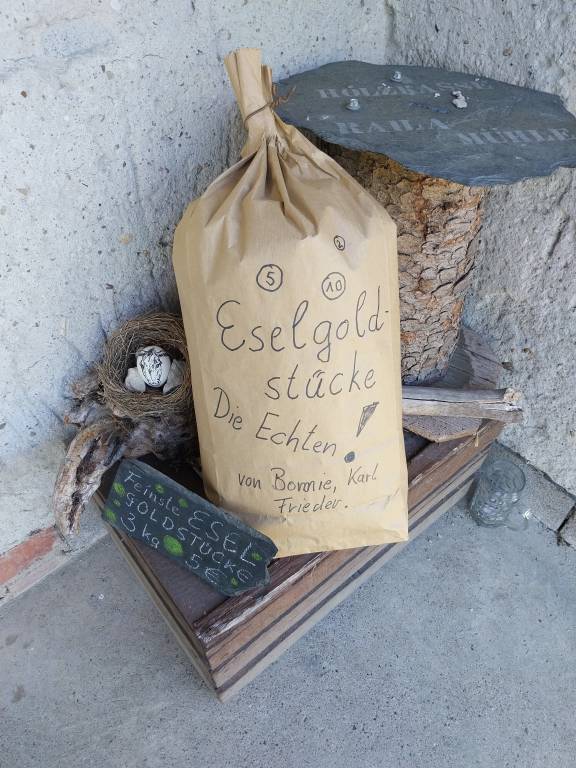 RAILA
MÜHLE
2
5
10
Eselgold-
stücke
Die Echten!
von Bonnie, Karl
Frieder.
Feinste ESEL
GOLDSTÜCKE
3 kg 5€